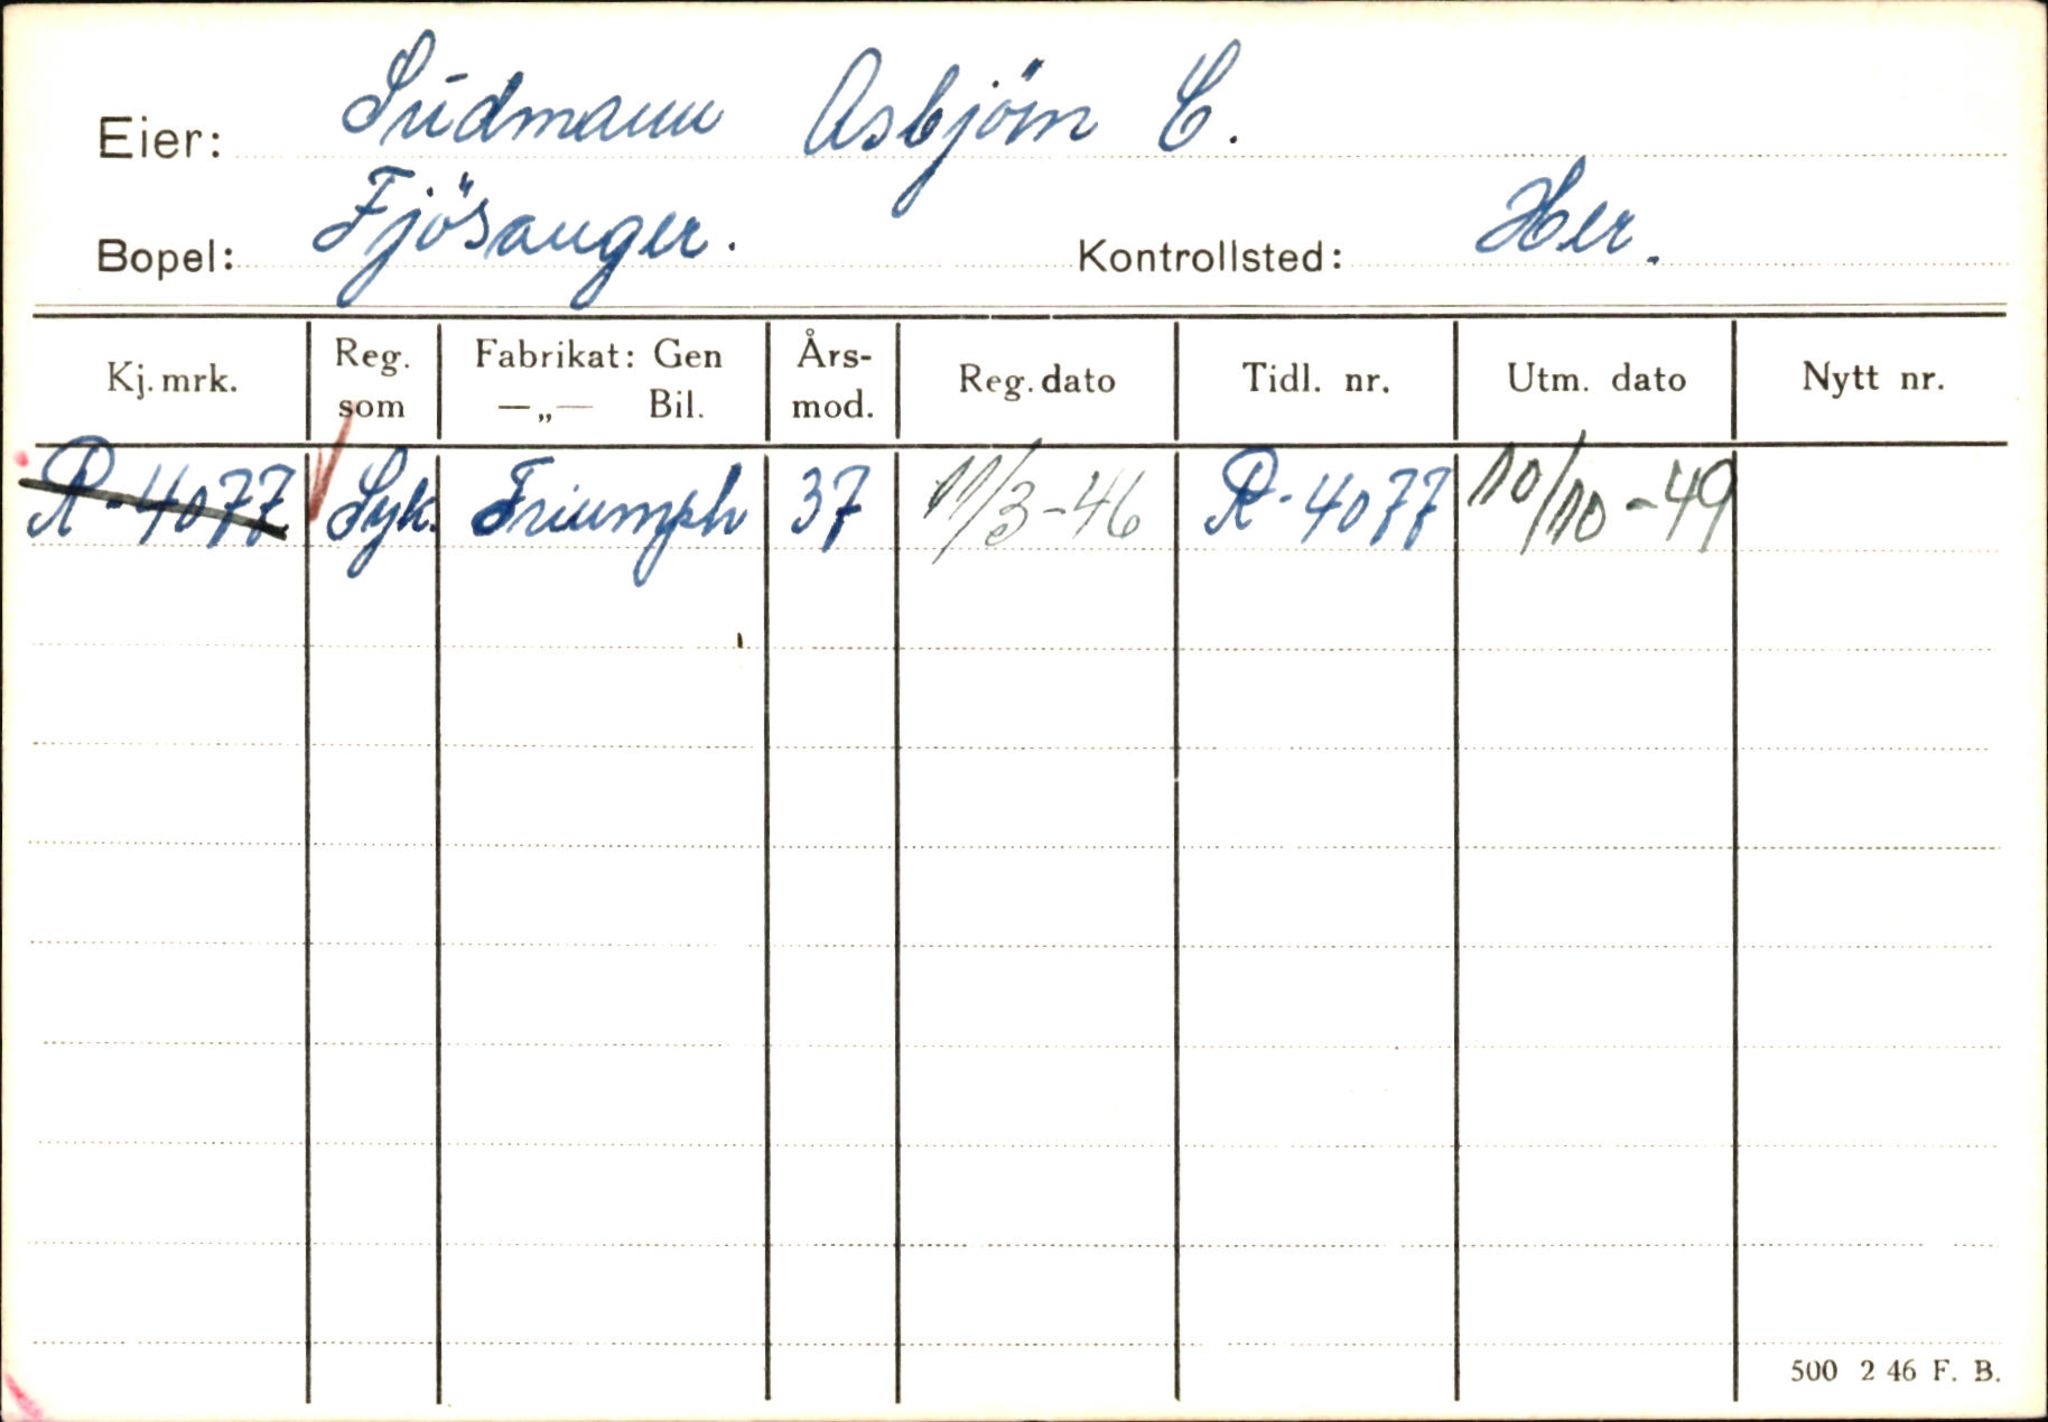 Eier: Sūdmann Asbjörn C.
Bopel: Fjösanger. Kontrollsted: Her.
Kj. mrk. Reg. som Fabrikat: Gen —„— Bil. Års- mod. Reg. dato Tidl. nr. Utm. dato Nytt nr.
R-4077 Syk. Triumph 37 11/3-46 R-4077 10/10-49
500 2 46 F. B.